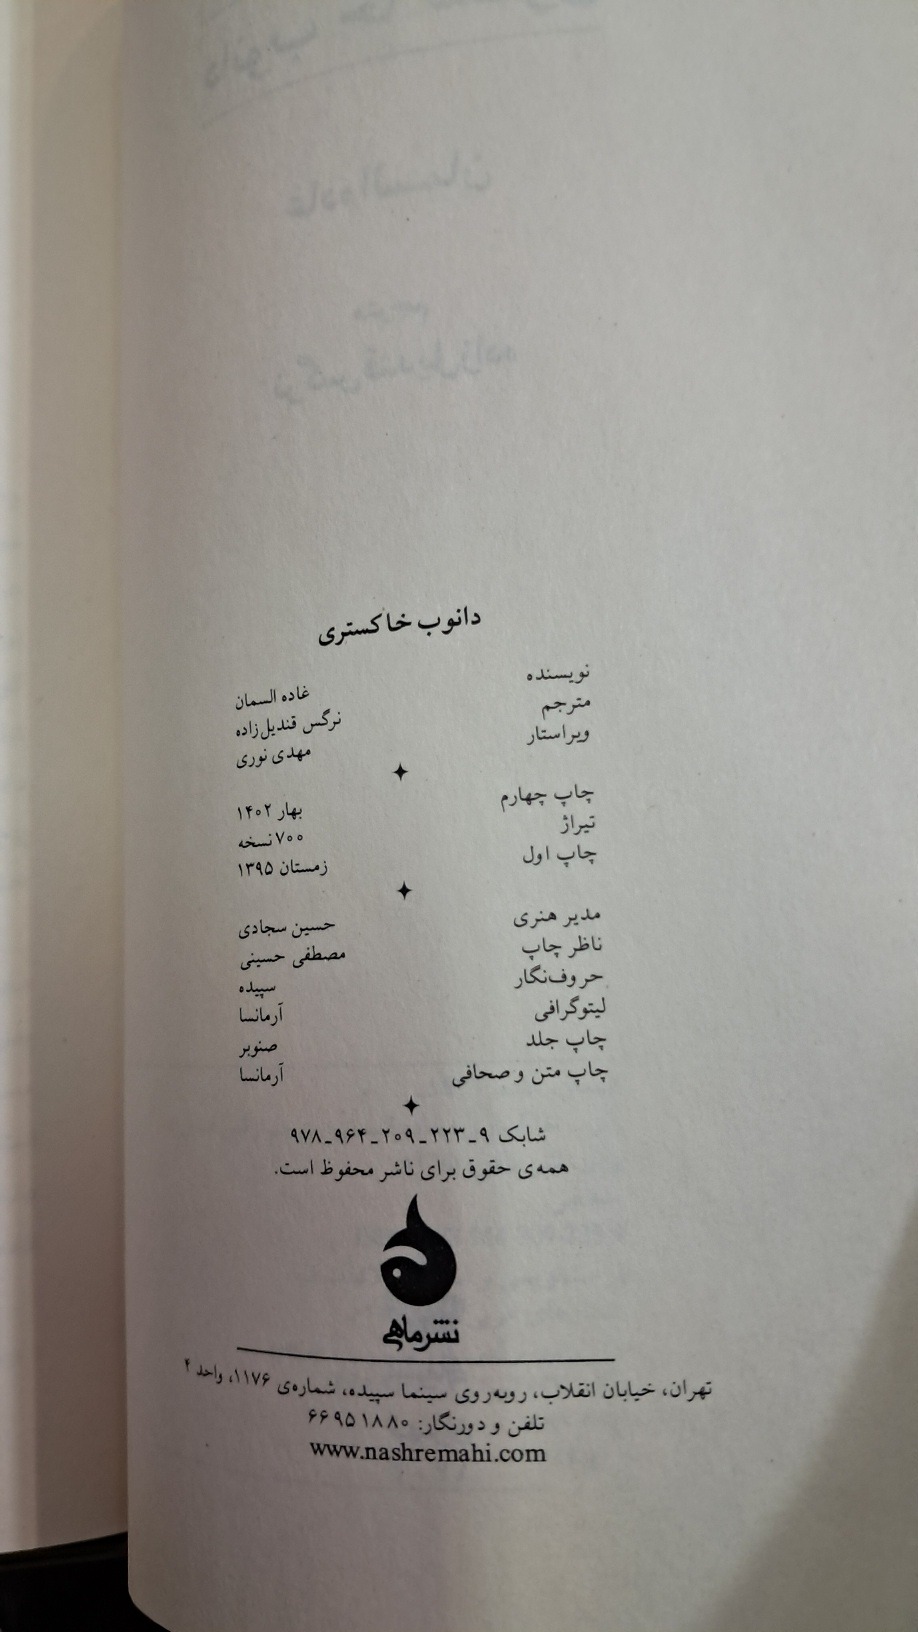 دانوب خاکستری
نویسنده غاده السمان
مترجم نرگس قندیل‌زاده
ویراستار مهدی نوری
چاپ چهارم بهار ۱۴۰۲
تیراژ ۷۰۰ نسخه
چاپ اول زمستان ۱۳۹۵
مدیر هنری حسین سجادی
ناظر چاپ مصطفی حسینی
حروف‌نگار سپیده
لیتوگرافی آرمانسا
چاپ جلد صنوبر
چاپ متن و صحافی آرمانسا
شابک ۹_۲۲۳_۲۰۹_۹۶۴_۹۷۸
همه‌ی حقوق برای ناشر محفوظ است.
نشرماهی
تهران، خیابان انقلاب، روبه‌روی سینما سپیده، شماره‌ی ۱۱۷۶، واحد ۴
تلفن و دورنگار: ۶۶۹۵۱۸۸۰
www.nashremahi.com